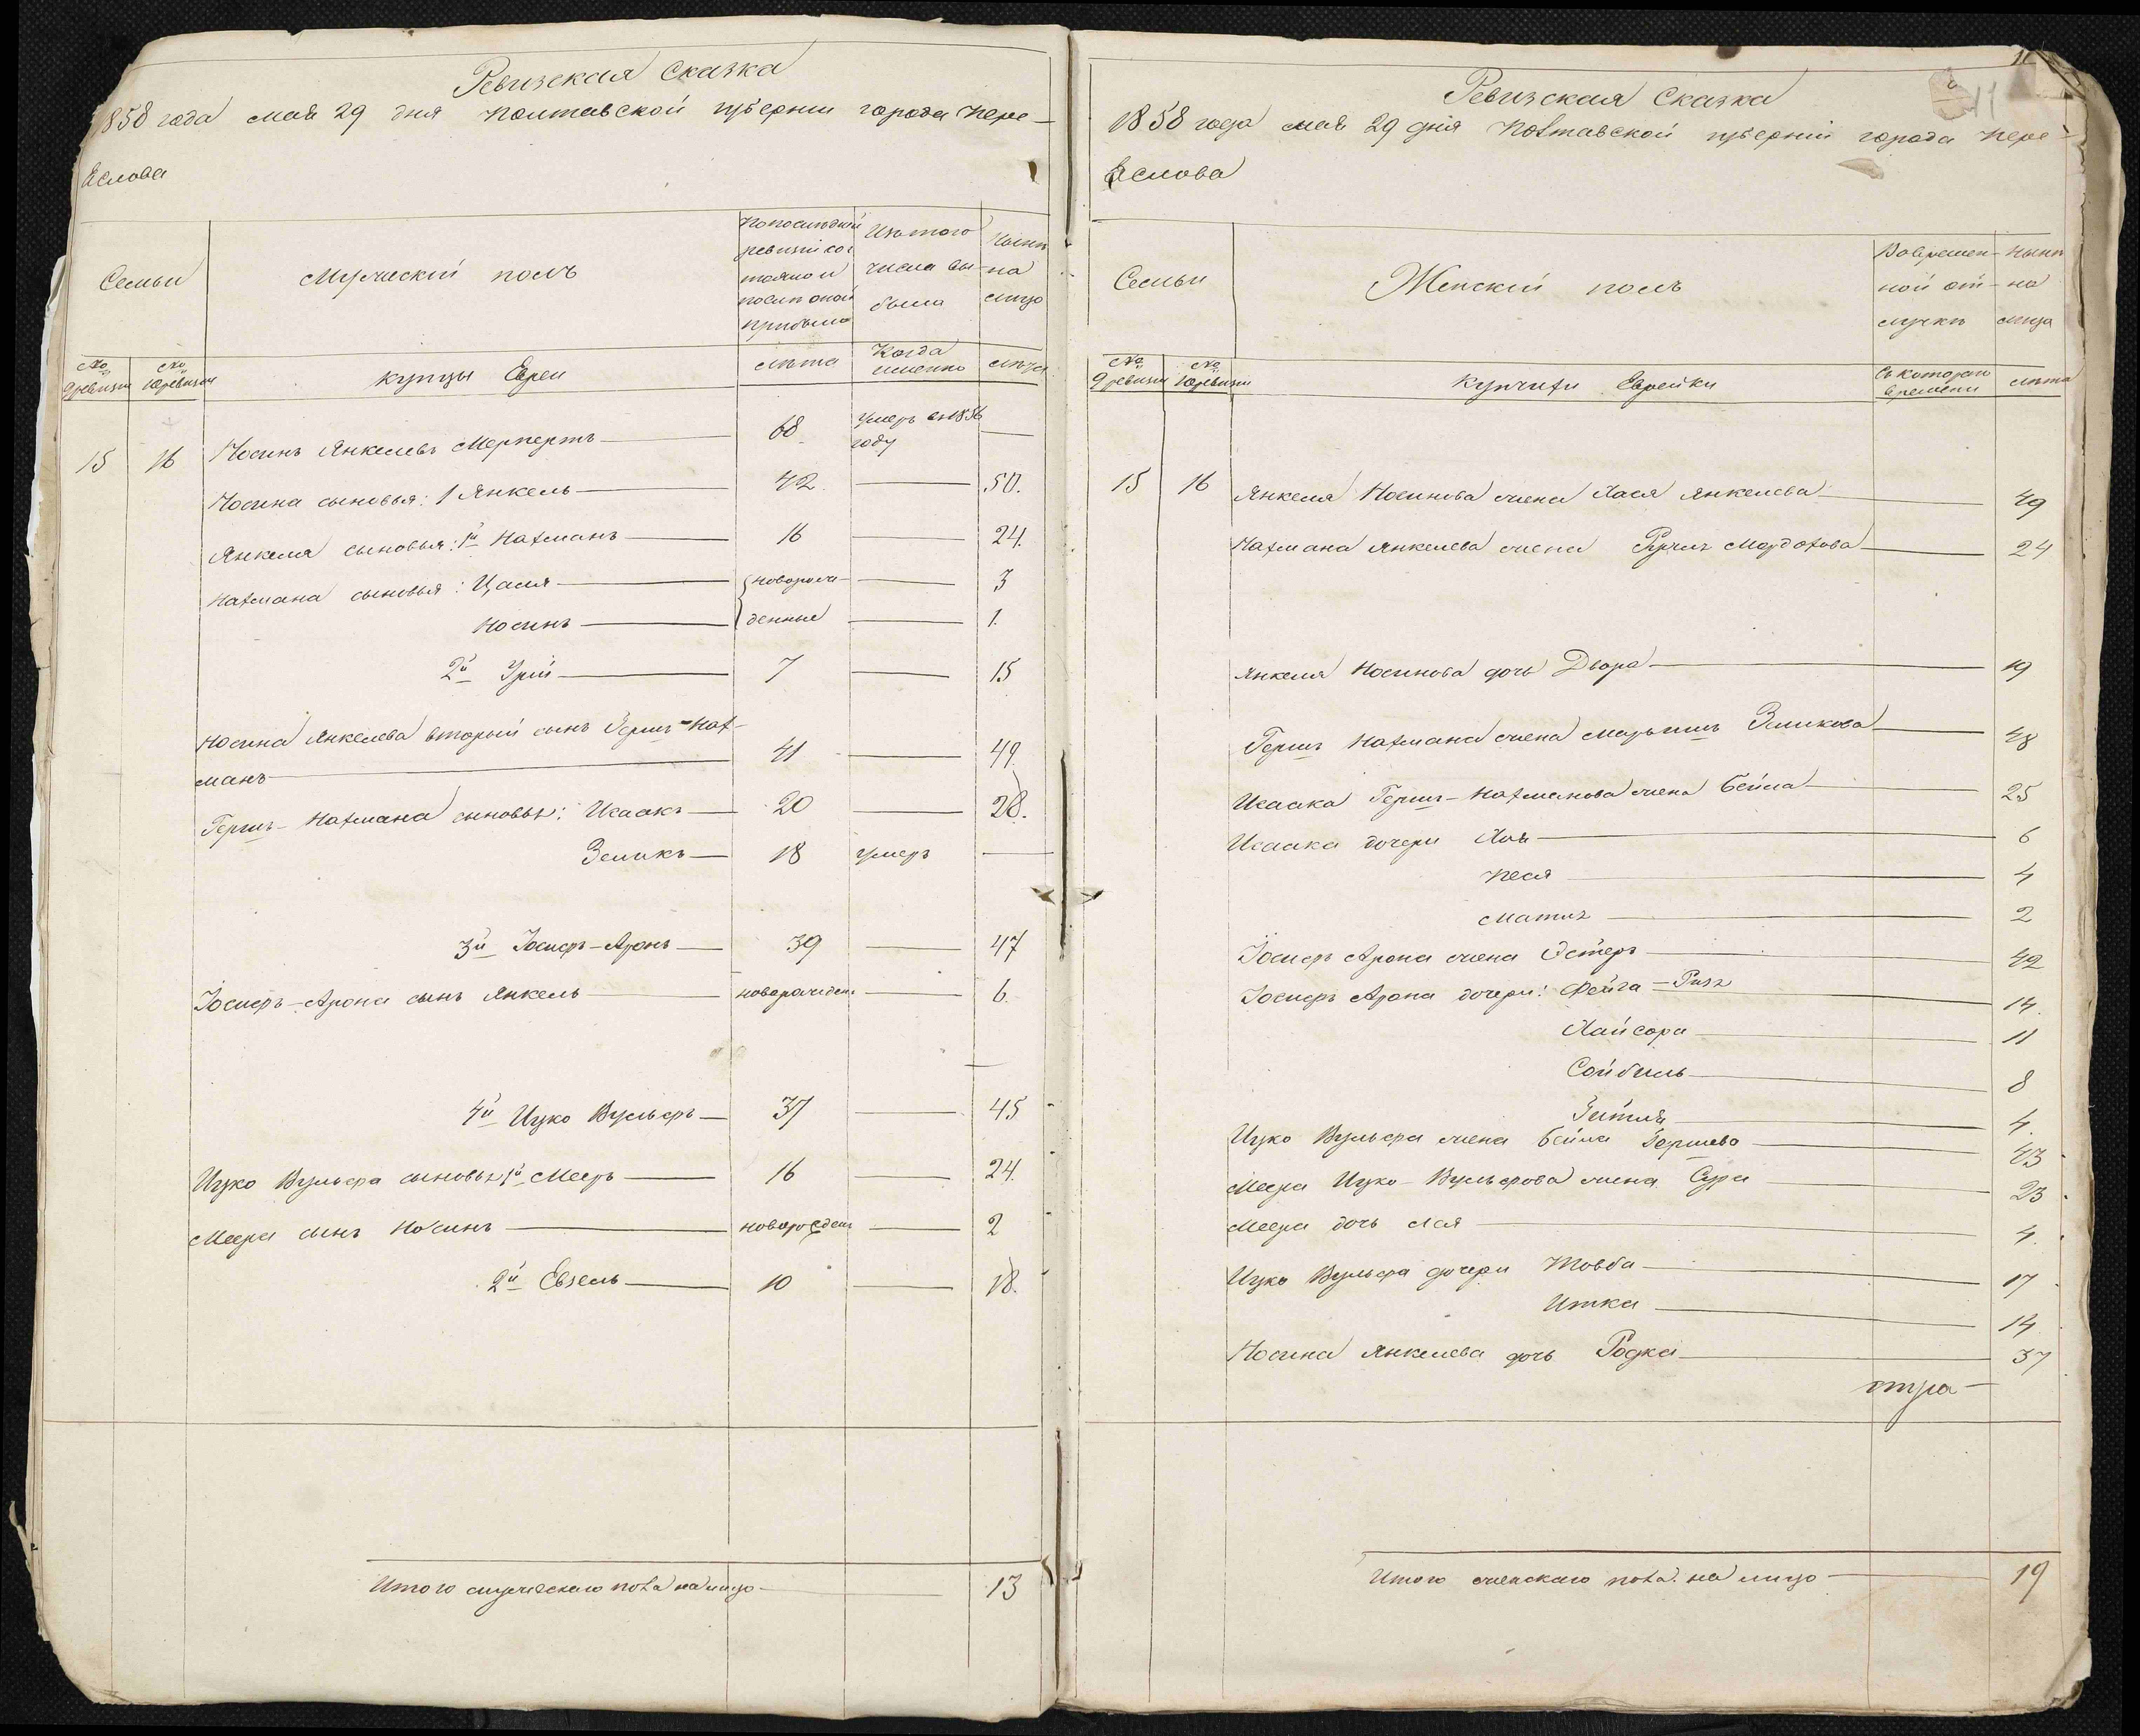 Ревизская Сказка
1858 года мая 29 дня Полтавской губернии города Пере-
яслова
Семьи
Мужеский полъ
По последней ревизіи состояло и после оной прибыло
Изъ того числа выбыло
Ныне на лицо
№ 9 ревизіи
№ 10 ревизіи
Купцы Евреи
лета
Когда именно
лета
15 16 Носинъ Янкелевъ Мерперть 68 умеръ въ 1856 году —
Носина сыновья: 1 Янкель 42 — 50.
Янкеля сыновья: 1й Нахманъ 16 — 24.
Нахмана сыновья: Цаля новорож- — 3
Носинъ денные — 1.
2й Урій 7 — 15
Носина Янкелева второй сынъ Гершъ-Нах-
манъ 41 — 49.
Гершъ-Нахмана сыновья: Исаакъ 20 — 28.
Зеликъ 18 умеръ —
3й Іосифъ-Аронъ 39 — 47
Іосифъ-Арона сынъ Янкель новорожден — 6.
4й Ицко Вульфъ 37 — 45
Ицко Вульфа сыновья 1й Мееръ 16 — 24.
Меера сынъ Носинъ новорожден — 2
2й Евзель 10 — 18.
Итого мужескаго пола на лицо 13
11
Ревизская Сказка
1858 года мая 29 дня Полтавской губерніи города Пере-
яслова
Семьи
Женскій полъ
Во временной отлучке
Ныне на лицо
№ 9 ревизіи
№ 10 ревизіи
Купчихи Еврейки
Съ котораго времени
лета
15 16 Янкеля Носинова жена Хася Янкелева 49
Нахмана Янкелева жена Рухль Мордохова 24
Янкеля Носинова дочь Двора 19
Гершъ Нахмана жена Марьяшъ Зеликова 48
Исаака Гершъ-Нахманова жена Бейла 25
Исаака дочери Хая 6
Песя 4
Матля 2
Іосифъ Арона жена Эстеръ 42
Іосифъ Арона дочери: Фейга-Риза 14.
Хайсора 11
Сойбиль 8
Зитля 4.
Ицко Вульфа жена Бейла Гершева 43
Меера Ицко-Вульфова жена Сура 23
Меера дочь Лая 4.
Ицко Вульфа дочери Товба 17
Итка 14
Носина Янкелева дочь Родка 37
Итого женскаго пола на лицо 19